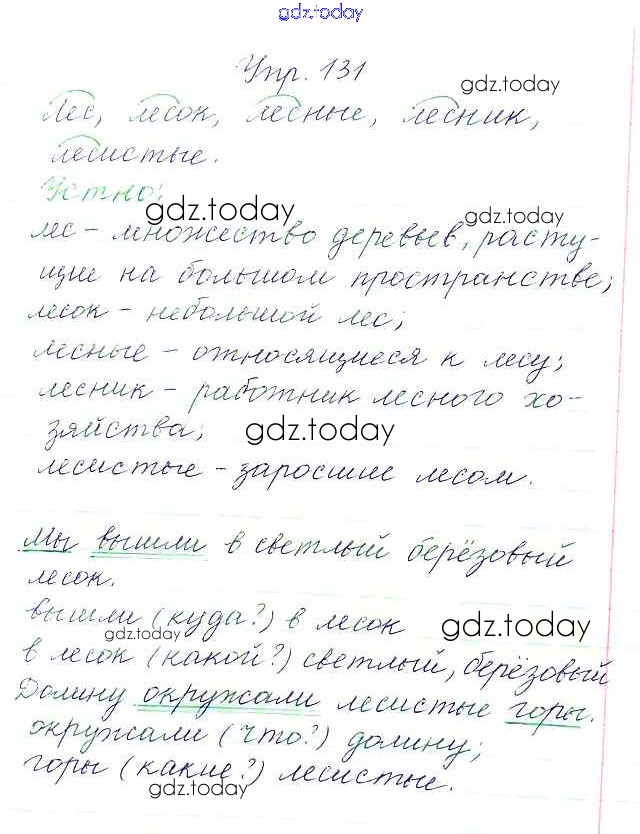 gdz.today
Упр. 131
gdz.today
Лес, лесок, лесные, лесник,
лесистые.
Устно:
gdz.today
gdz.today
лес - множество деревьев, расту-
щие на большом пространстве;
лесок - небольшой лес;
лесные - относящиеся к лесу;
лесник - работник лесного хо-
зяйства;
gdz.today
лесистые - заросшие лесом.
Мы вышли в светлый берёзовый
лесок.
вышли (куда?) в лесок
gdz.today
gdz.today
в лесок (какой?) светлый, берёзовый
Долину окружали лесистые горы.
окружали (что?) долину;
горы (какие?) лесистые.
gdz.today